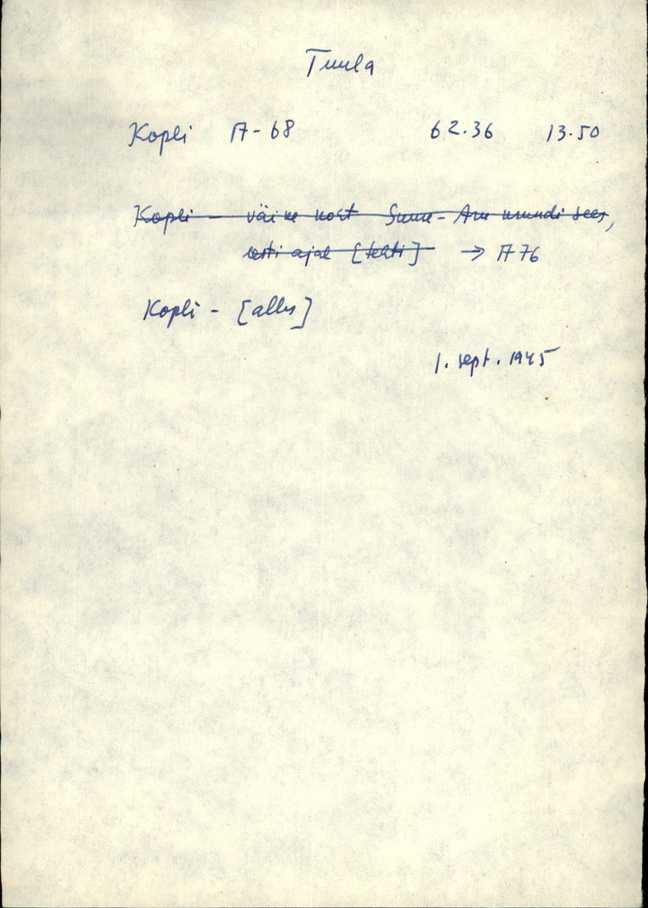 Tuula
Kopli A-68 62.36 13.50
Kopli - väike koht Suure-Aru mundi sees,
eesti ajal [tehti] → A 76
Kopli - [alles]
1. sept. 1945